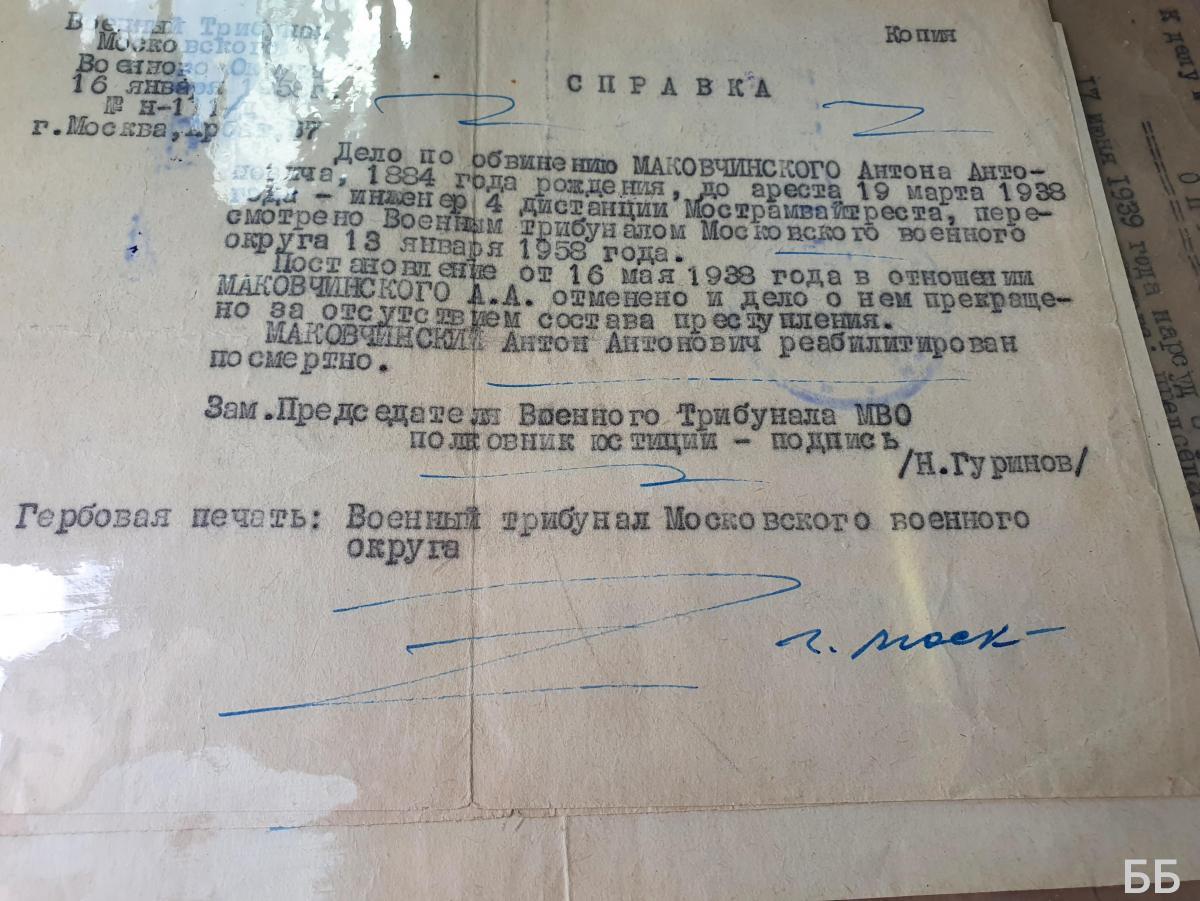 Военный Трибунал
Московского
Военного Округа
16 января 1958 г.
№ н-111/
г.Москва,Арбат,37
Копия
СПРАВКА
Дело по обвинению МАКОВЧИНСКОГО Антона Анто-
новича, 1884 года рождения, до ареста 19 марта 1938
года - инженер 4 дистанции Мострамвайтреста, пере-
смотрено Военным трибуналом Московского военного
округа 13 января 1958 года.
Постановление от 16 мая 1938 года в отношении
МАКОВЧИНСКОГО А.А. отменено и дело о нем прекраще-
но за отсутствием состава преступления.
МАКОВЧИНСКИЙ Антон Антонович реабилитирован
посмертно.
Зам.Председателя Военного Трибунала МВО
полковник юстиции - подпись
/Н.Гуринов/
Гербовая печать: Военный трибунал Московского военного
округа
г. Моск-
17 июня 1939 года нарсуд
ББ